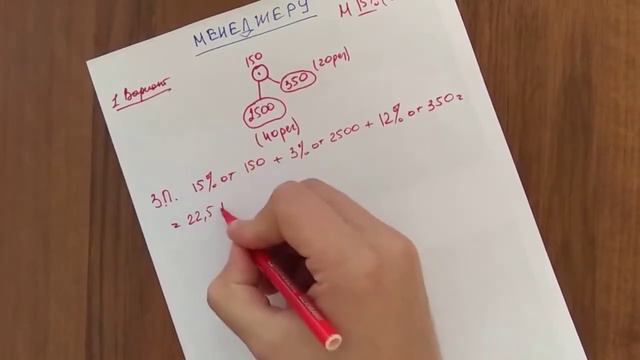 МЕНЕДЖЕРУ
М 15% (
1 Вариант
150
350
(20 рег)
2500
(40 рег)
З.П. 15% от 150 + 3% от 2500 + 12% от 350 =
= 22,5